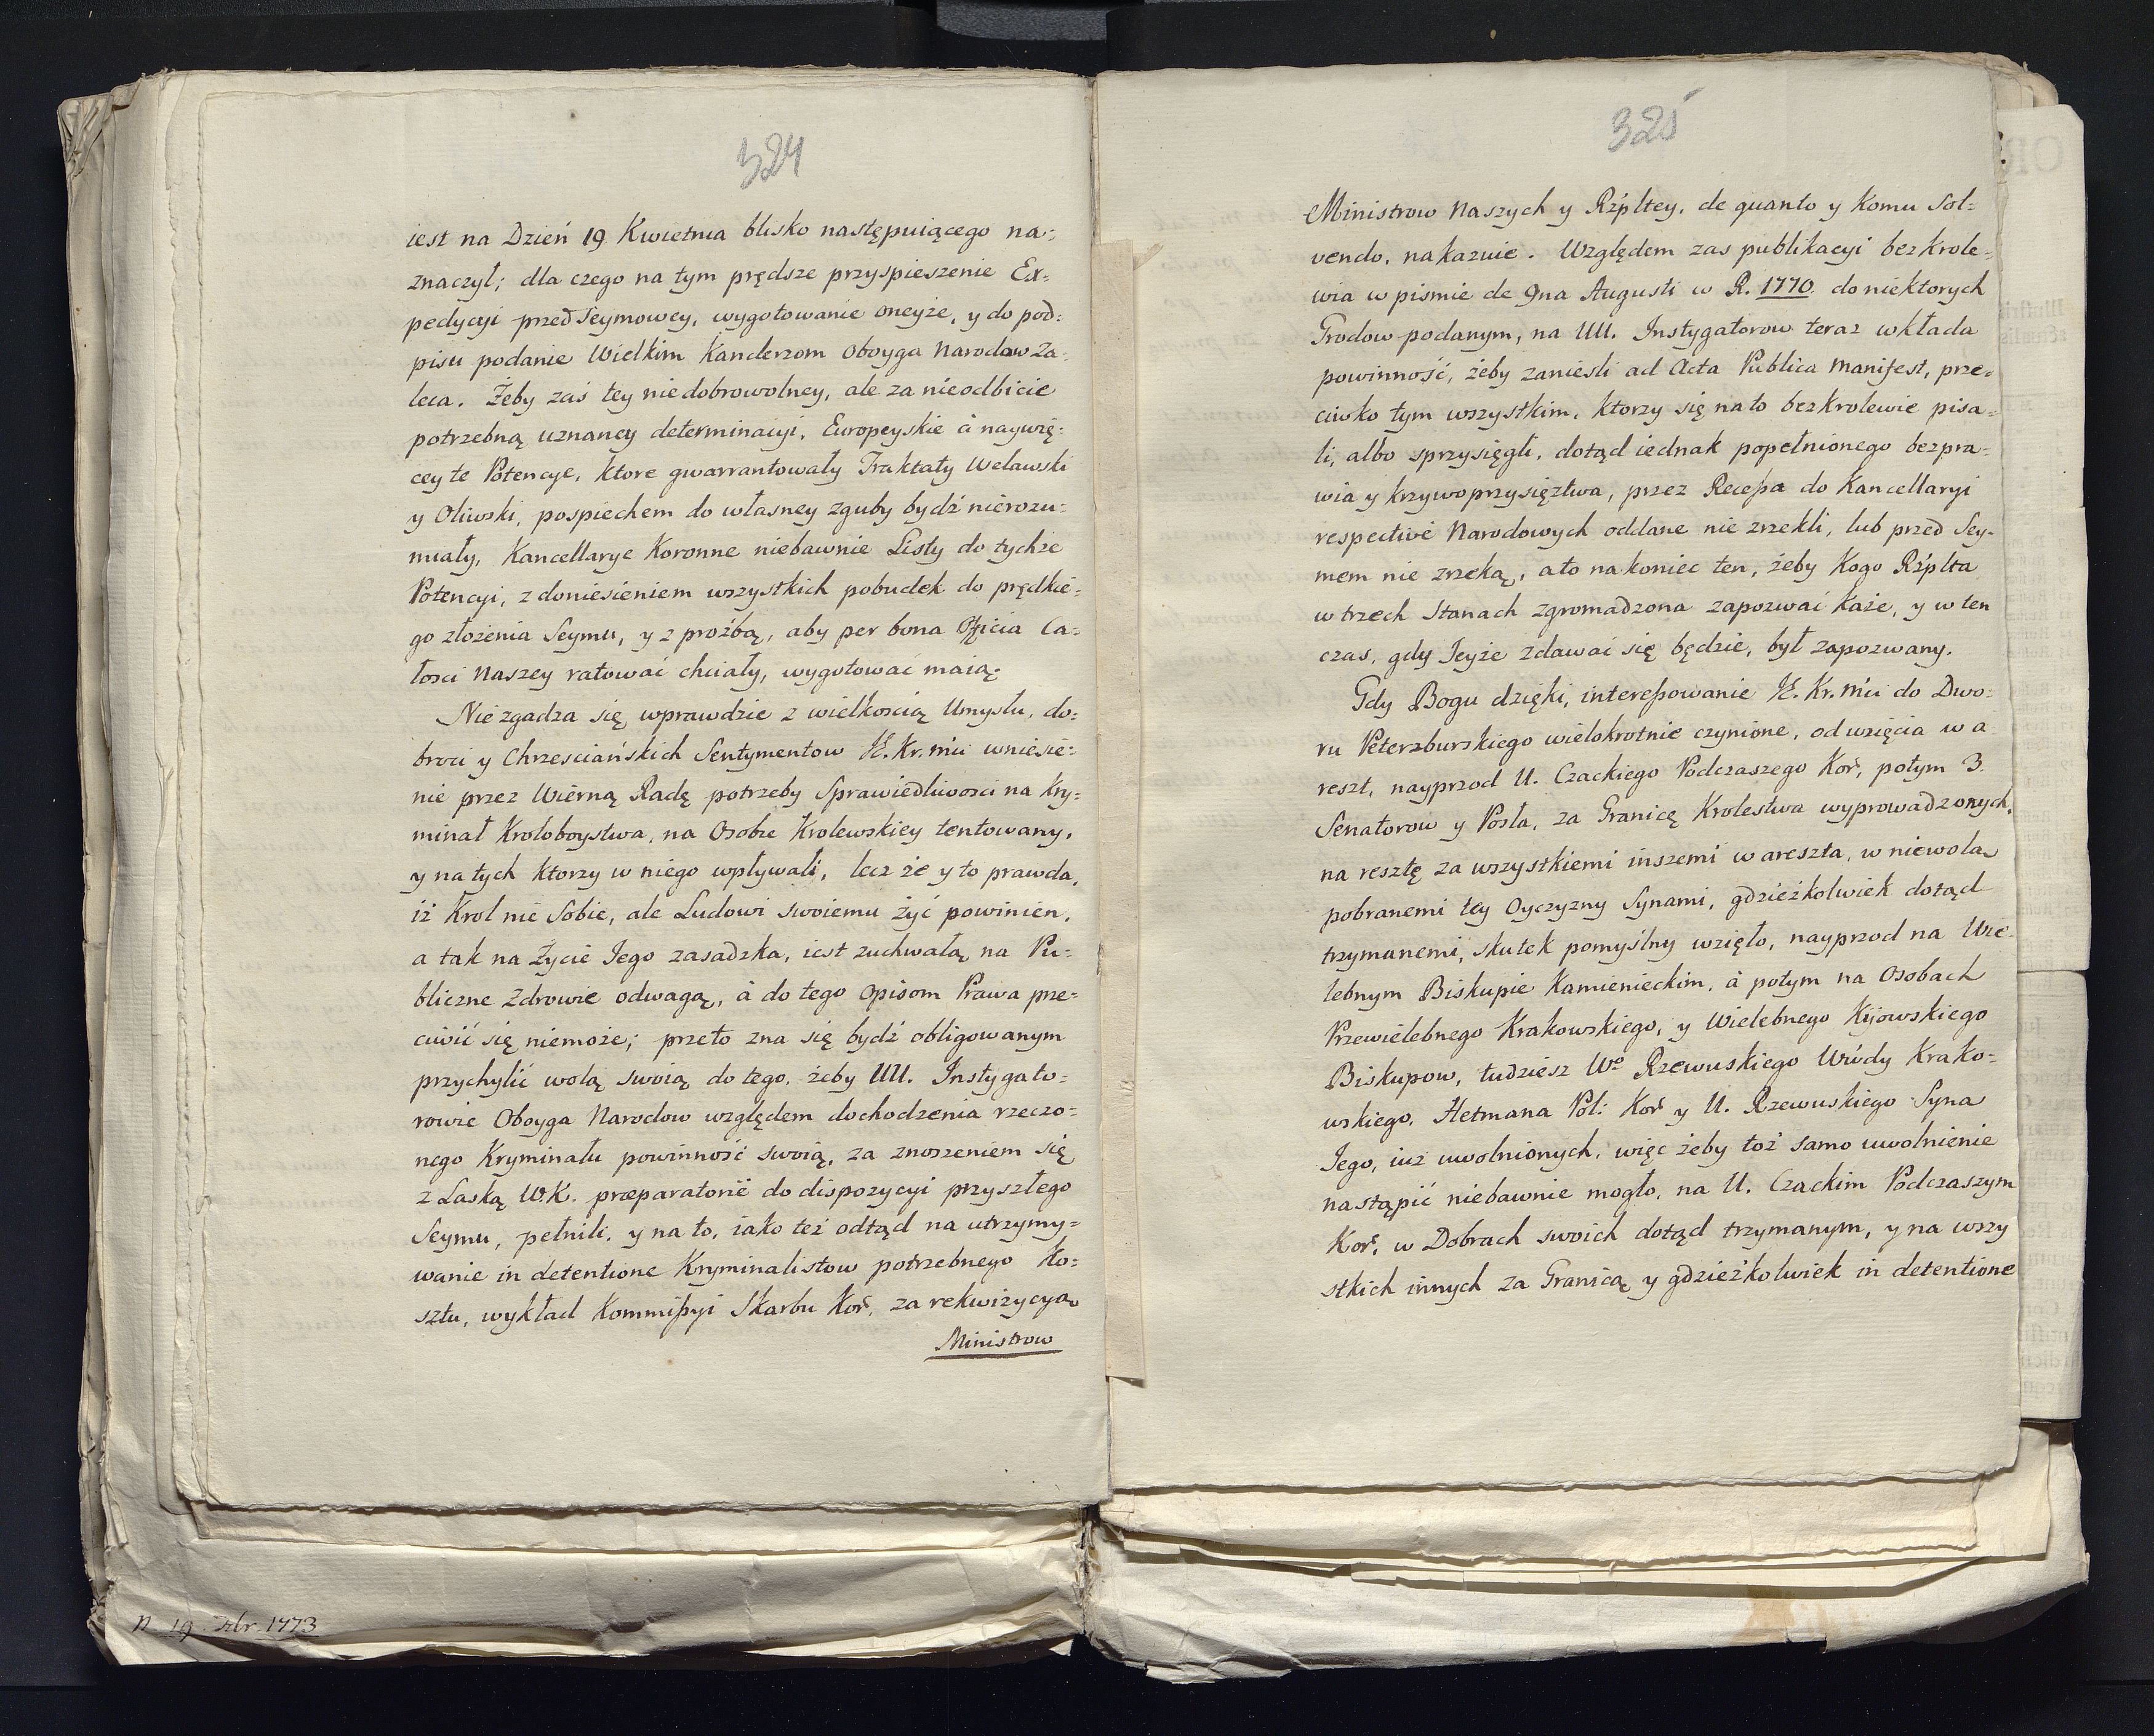 324
iest na Dzień 19 Kwietnia blisko następuiącego na=
znaczył; dla czego na tym prędsze przyspieszenie Ex=
pedycyi przed Seymowey, wygotowanie oneyże, y do pod=
pisu podanie Wielkim Kanclerzom oboyga Narodow Za=
leca. Żeby zaś tey niedobrowolney, ale za nieodbicie
potrzebną uznaney determinacyi, Europeyskie á naywię=
cey te Potencye, ktore gwarrantowały Traktaty Welawski
y Oliwski, pospiechem do własney zguby bydź nierozu=
miały, Kancellarye Koronne niebawnie Listy do tychże
Potencyi, z doniesieniem wszystkich pobudek do prędkie=
go złożenia Seymu, y z proźbą, aby per bona Officia Ca=
łosci Naszey ratować chciały, wygotować maią.
Nie zgadza się wprawdzie z wielkoscią Umysłu, do=
broci y Chrzesciańskich Sentymentow JK. Kr. Mci wniesie=
nie przez Wierną Radę potrzeby Sprawiedliwosci na Kry=
minał Kroloboystwa, na Osobie Krolewskiey tentowany,
y na tych ktorzy w niego wpływali, lecz że y to prawda,
iż Krol nie Sobie, ale Ludowi swoiemu żyć powinien,
a tak na Życie Jego zasadzka, iest zuchwałą na Pu=
bliczne Zdrowie odwagą, á do tego opisom Prawa prze=
ciwić się niemoże; przeto zna się bydź obligowanym
przychylić wolą swoią do tego, żeby UU. Instygato=
rowie Oboyga Narodow względem dochodzenia rzeczo=
nego Kryminału powinność swoią, za znoszeniem się
z Laską W.K. præparatoriè do dispozycyi przyszłego
Seymu, pełnili, y na to, iako też odtąd na utrzymy=
wanie in detentione Kryminalistow potrzebnego Ko=
sztu, wykład Kommissyi Skarbu Kor. za rekwizycyą
Ministrow
325
Ministrow Naszych y Rzpltey, de quanto y komu Sol=
vendo, nakazuie. Względem zas publikacyi bezkrole=
wia w pismie de 9na Augusti w R. 1770. do niektorych
Grodow podanym, na UU. Instygatorow teraz wkłada
powinność, żeby zaniesli ad Acta Publica Manifest, prze=
ciwko tym wszystkim, ktorzy się na to bezkrolewie pisa=
li, albo sprzysięgli, dotąd iednak popełnionego bezpra=
wia y krzywoprzysięztwa, przez Recessa do Kancellaryi
respectivè Narodowych oddane nie zrzekli, lub przed Sey=
mem nie zrzeką, a to nakoniec ten, żeby Kogo Rzplta
w trzech Stanach zgromadzona zapozwać każe, y w ten
czas, gdy Jeyże zdawać się będzie, był zapozwany.
Gdy Bogu dzięki, interessowanie JK. Kr. Mci do Dwo=
ru Peterzburskiego wielokrotnie czynione, od wzięcia w a
reszt, nayprzod U. Czackiego Podczaszego Kor, potym 3.
Senatorow y Posła, za Granicę Krolestwa wyprowadzonych,
na resztę za wszystkiemi inszemi w areszta, w niewolą
pobranemi tey Oyczyzny Synami, gdzieżkolwiek dotąd
trzymanemi, skutek pomyślny wzięło, nayprzod na Wie=
lebnym Biskupie Kamienieckim, á potym na Osobach
Przewielebnego Krakowskiego, y Wielebnego Kijowskiego
Biskupow, tudziesz Wo Rzewuskiego Wdy Krako=
wskiego, Hetmana Pol: Kor y U. Rzewuskiego Syna
Jego, iuż uwolnionych, więc żeby toż samo uwolnienie
nastąpić niebawnie mogło, na U. Czackim Podczaszym
Kor, w Dobrach swoich dotąd trzymanym, y na wszy
stkich innych za Granicą y gdzieżkolwiek in detentione
19 1773